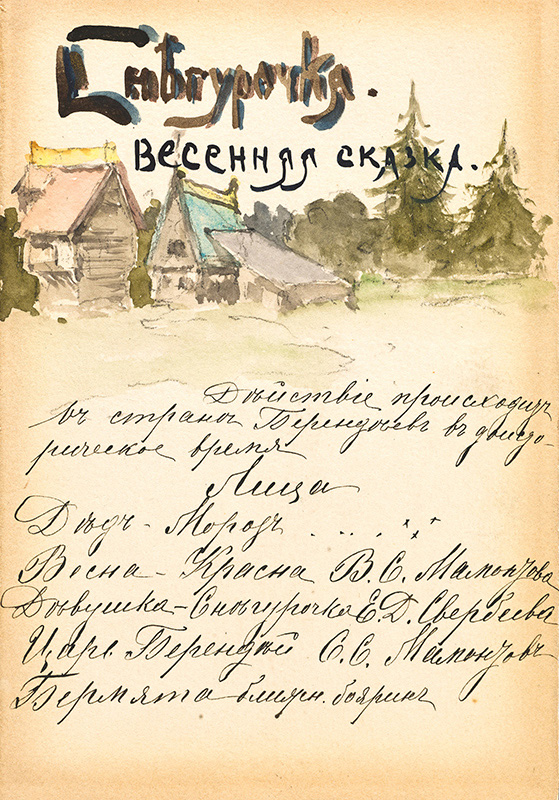 Снѣгурочка.
Весенняя сказка.
Дѣйствіе происходитъ
въ странѣ Берендѣевъ въ доисто-
рическое время
Лица
Дѣдъ - Морозъ . . . . ***
Весна - Красна В. С. Мамонтова
Дѣвушка - Снѣгурочка Е. Д. Свербеева
Царь Берендѣй С. С. Мамонтовъ
Бермята ближн. бояринъ